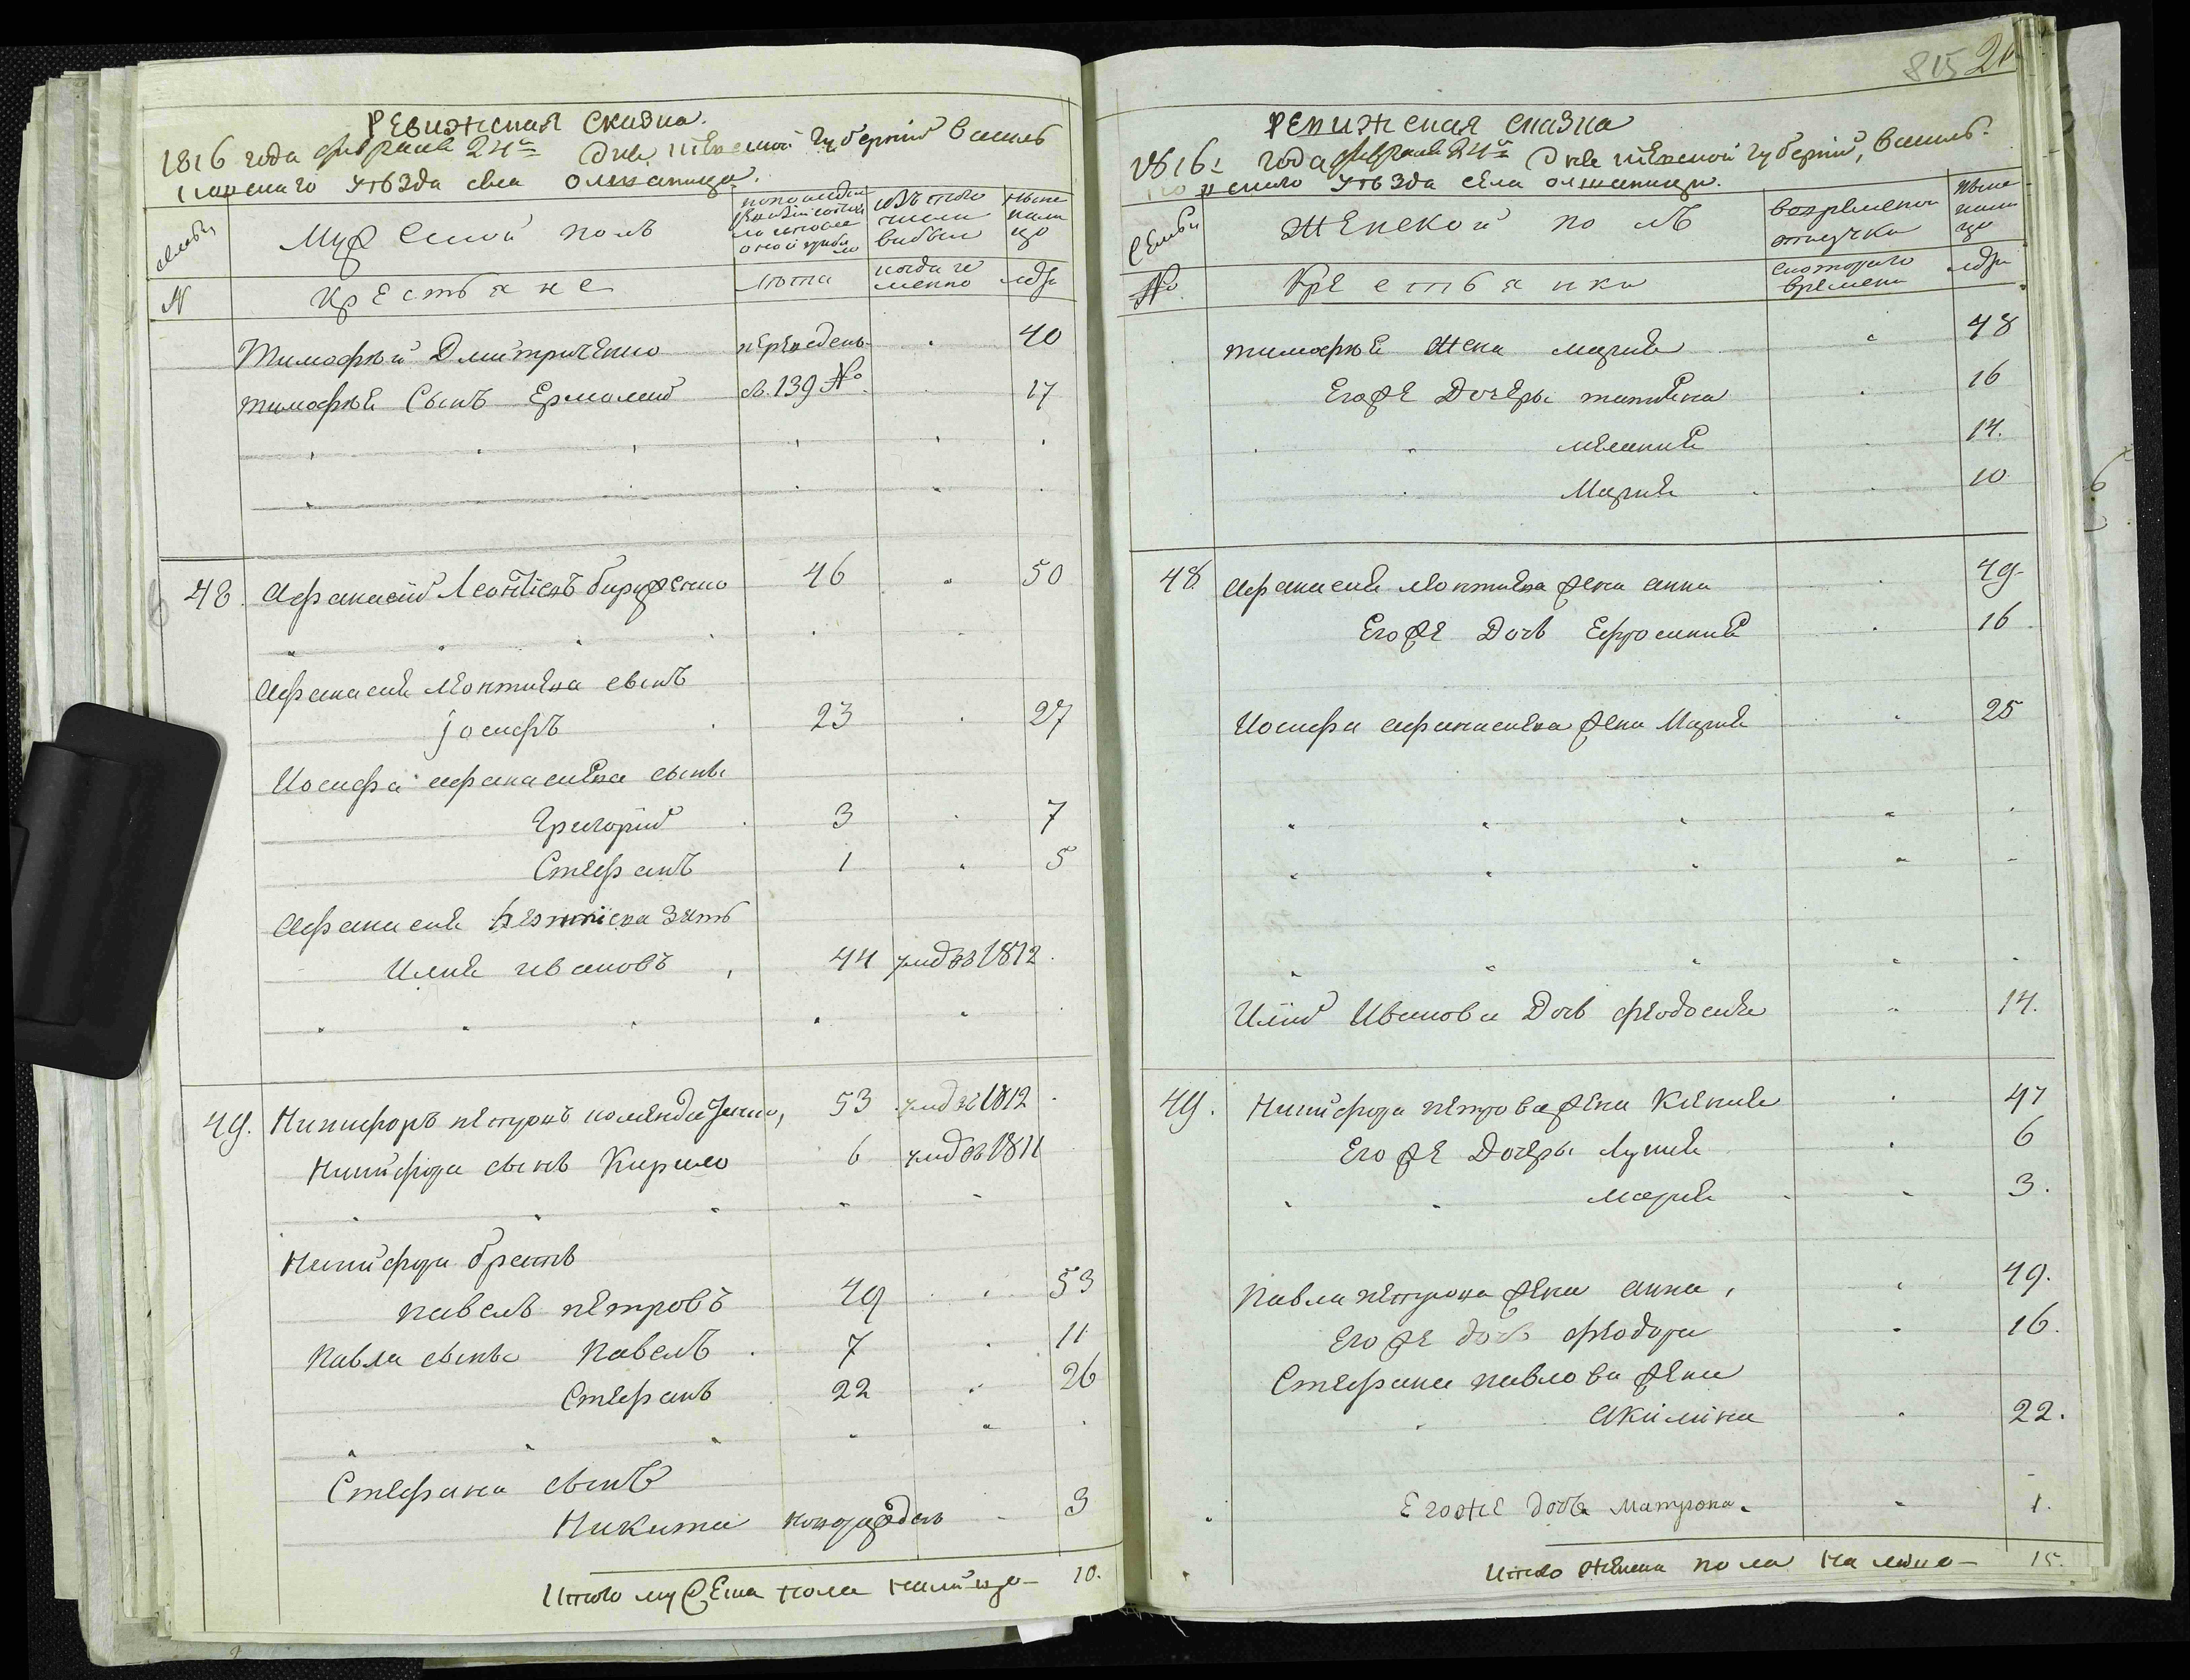 Ревижская Сказка.
1816 года февраля 24го дня, Киевской губернии Василь
ковскаго уѣзда села Олшаница.
семьи
Мужеской полъ
по последней ревизіи состояло и после оной прибыло
изъ того числа выбыло
ныне на лицо
N
Крестьяне
лета
когда именно
лета
Тимофѣй Дмитриченко переведенъ 40
Тимофѣя Сынъ Ермолай съ 139 № 17
48. Афанасий Леонтіевъ 46 50
Афанасия Леонтиева сынъ
Іосифъ 23 27
Иосифа Афанасиева сыны
Григорий 3 7
Стефанъ 1 5
Афанасия Леонтіева зять
Илия Ивановъ 44 умр въ 1812
49. Никифоръ Петровъ 53 умр въ 1812
Никифора сынъ Кирило 6 умр въ 1811
Никифора братъ
Павелъ Петровъ 49 53
Павла сыны Павелъ 7 11
Стефанъ 22 26
Стефана сынъ
Никита новорожденъ 3
Итого мужеска пола налицо 10.
815 21
Ревижская сказка
1816: года февраля 24го дня Киевской губернии, Василь
ковскаго уѣзда села Олшаница.
семьи
Женской полъ
во временной отлучки
ныне на лицо
№
Крестьянки
с которого времени
лета
Тимофѣя Жена Мария 48
Егоже Дочеры Татияна 16
Мелания 14.
Мария 10
48 Афанасия Леонтиева жена Анна 49
Егоже Дочь Ефросиния 16
Иосифа Афанасиева жена Мария 25
Илии Иванова Дочь Феодосия 14.
49. Никифора Петрова жена Ксения 47
Егоже Дочеры Лукия 6
Мария 3.
Павла Петрова жена Анна, 49.
Егоже дочь Феодора 16.
Стефана Павлова жена
Акилина 22.
Егоже дочь Матрона. 1.
Итого женска пола на лицо 15.